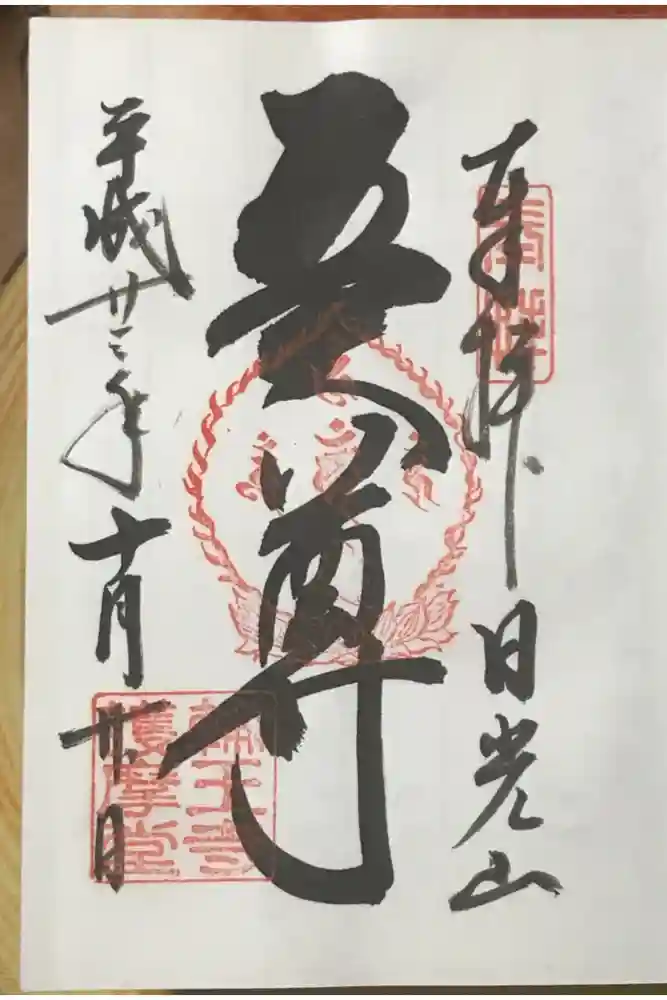 奉拝 日光山
五大尊
平成廿二年十月廿日
輪王寺
護摩堂